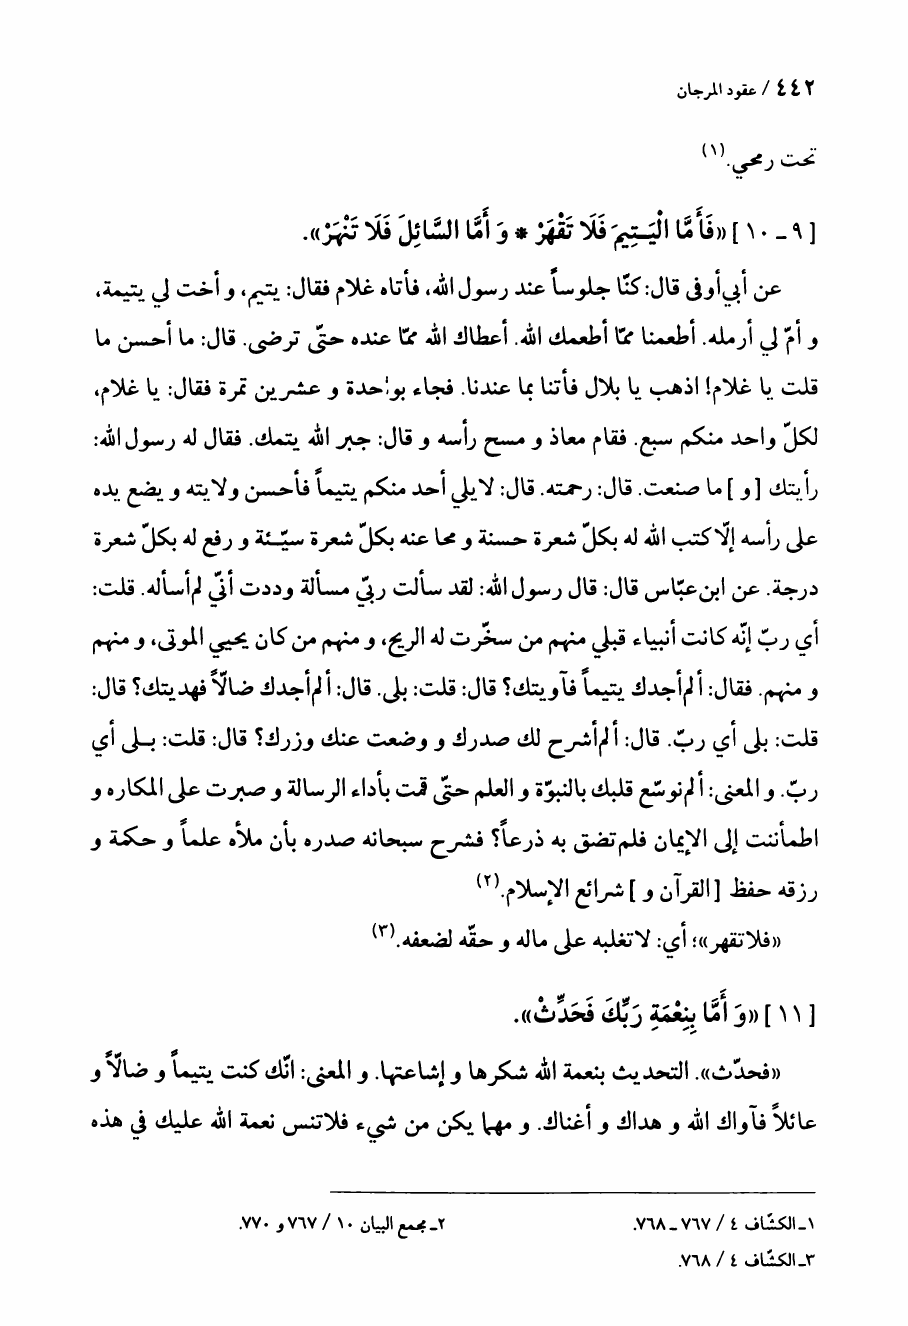 ٤٤٢ / عقود المرجان
تحت رمحي.(١)
[ ٩ ـ ١٠ ] «فَأَمَّا الْيَـتِيمَ فَلَا تَقْهَرْ * وَ أَمَّا السَّائِلَ فَلَا تَنْهَرْ».
عن أبي‌أوفى قال: كنّا جلوساً عند رسول الله، فأتاه غلام فقال: يتيم، و أخت لي يتيمة،
و أمّ لي أرمله. أطعمنا ممّا أطعمك الله. أعطاك الله ممّا عنده حتّى ترضى. قال: ما أحسن ما
قلت يا غلام! اذهب يا بلال فأتنا بما عندنا. فجاء بواحدة و عشرين تمرة فقال: يا غلام،
لكلّ واحد منكم سبع. فقام معاذ و مسح رأسه و قال: جبر الله يتمك. فقال له رسول الله:
رأيتك [و ] ما صنعت. قال: رحمته. قال: لايلي أحد منكم يتيماً فأحسن ولايته و يضع يده
على رأسه إلّا كتب الله له بكلّ شعرة حسنة و محا عنه بكلّ شعرة سيّـئة و رفع له بكلّ شعرة
درجة. عن ابن‌عبّاس قال: قال رسول الله: لقد سألت ربّي مسألة وددت أنّي لم‌أسأله. قلت:
أي ربّ إنّه كانت أنبياء قبلي منهم من سخّرت له الريح، و منهم من كان يحيي الموتى، و منهم
و منهم. فقال: ألم‌أجدك يتيماً فآويتك؟ قال: قلت: بلى. قال: ألم‌أجدك ضالّاً فهديتك؟ قال:
قلت: بلى أي ربّ. قال: ألم‌أشرح لك صدرك و وضعت عنك وزرك؟ قال: قلت: بـلى أي
ربّ. و المعنى: ألم‌نوسّع قلبك بالنبوّة و العلم حتّى قمت بأداء الرسالة و صبرت على المكاره و
اطمأننت إلى الإيمان فلم‌تضق به ذرعاً؟ فشرح سبحانه صدره بأن ملأه علماً و حكمة و
رزقه حفظ [القرآن و ] شرائع الإسلام.(٢)
«فلاتقهر»؛ أي: لاتغلبه على ماله و حقّه لضعفه.(٣)
[ ١١ ] «وَ أَمَّا بِنِعْمَةِ رَبِّكَ فَحَدِّثْ».
«فحدّث». التحديث بنعمة الله شكرها و إشاعتها. و المعنى: انّك كنت يتيماً و ضالّاً و
عائلاً فآواك الله و هداك و أغناك. و مهما يكن من شيء فلاتنس نعمة الله عليك في هذه
١ـ الكشّاف ٤ / ٧٦٧ ـ ٧٦٨.
٢ـ مجمع البيان ١٠ / ٧٦٧ و ٧٧٠.
٣ـ الكشّاف ٤ / ٧٦٨.